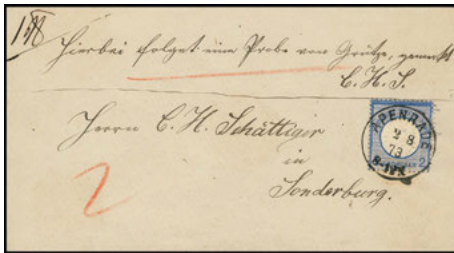 Hierbei folget eine Probe von Grütze, gemerkt
C. H. S.
Herrn C. H. Schättiger
in
Sonderburg.
APENRADE
2 8
73
2